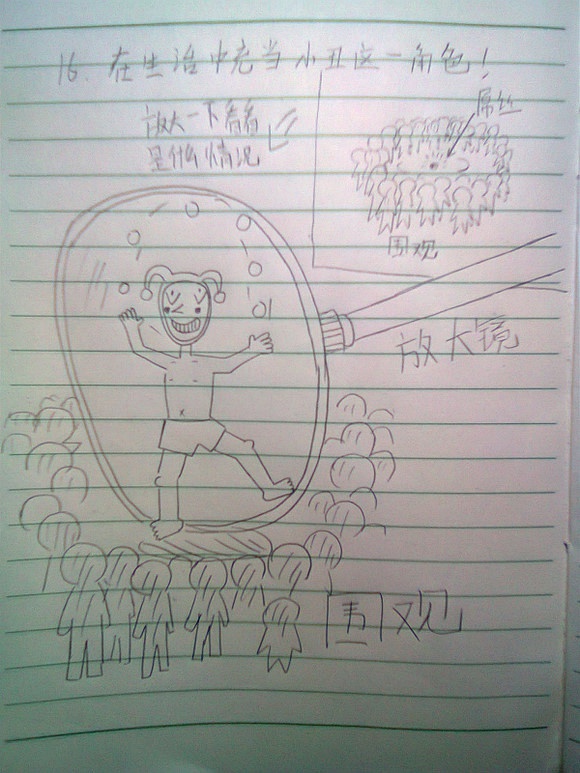 16. 在生活中充当小丑这一角色！
放大一下看看
是什么情况
屌丝
围观
放大镜
围观